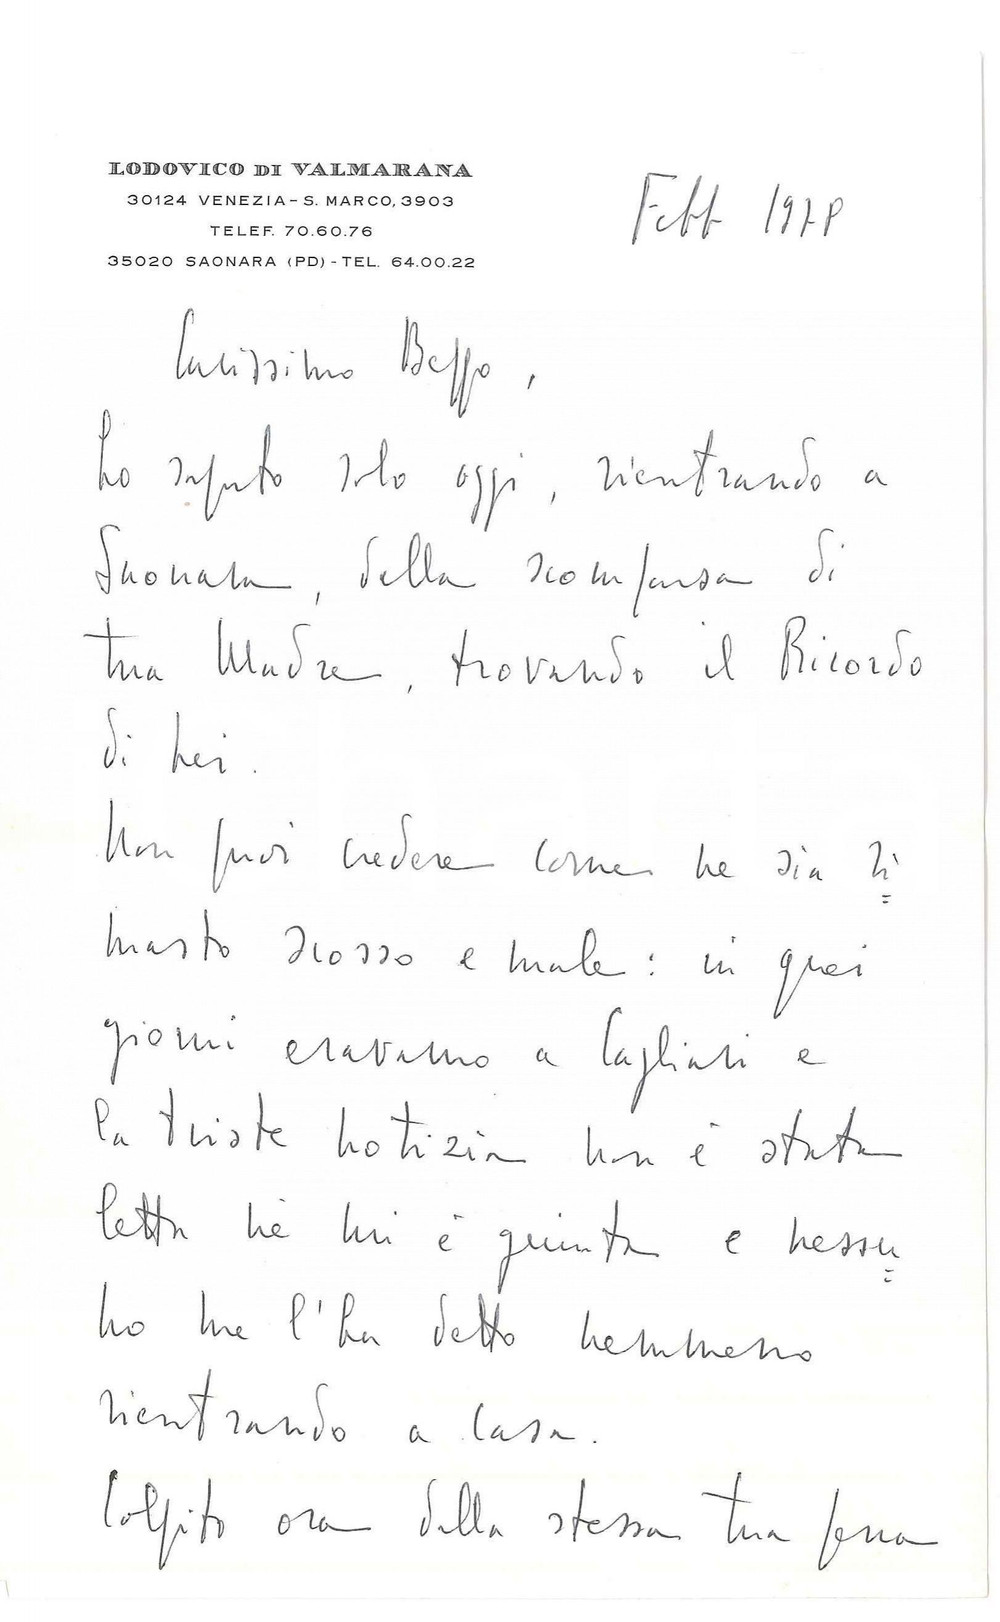 LODOVICO DI VALMARANA
30124 VENEZIA - S. MARCO, 3903
TELEF. 70.60.76
35020 SAONARA (PD) - TEL. 64.00.22
Febb 1978
Carissimo Beppo,
ho saputo solo oggi, rientrando a
Saonara, della scomparsa di
tua Madre, trovando il Ricordo
di Lei.
Non puoi credere come ne sia ri=
masto scosso e male: in quei
giorni eravamo a Cagliari e
la triste notizia non è stata
letta nè mi è giunta e nessu=
no me l'ha detto nemmeno
rientrando a casa.
Colpito ora dalla stessa tua pena